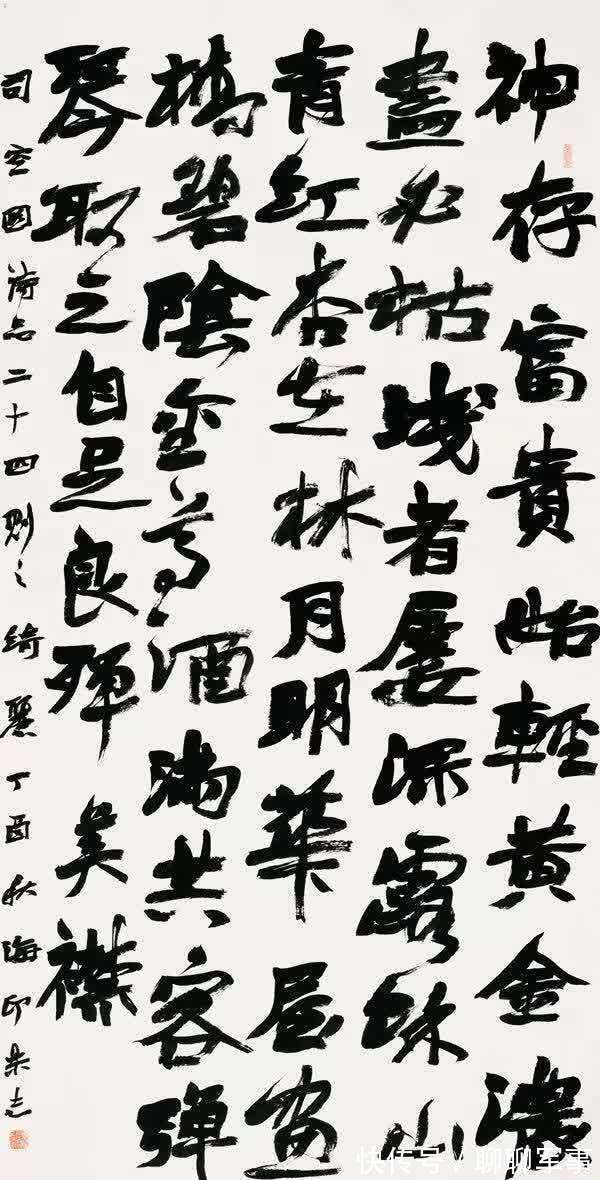 神存富貴始輕黃金濃
盡必枯淺者屢深露餘山
青紅杏在林月明華屋畫
橋碧陰金尊酒滿共客彈
琴取之自足良殫美襟
司空圖詩品二十四則之綺麗丁酉秋海印朱志
快传号 / 聊聊军事